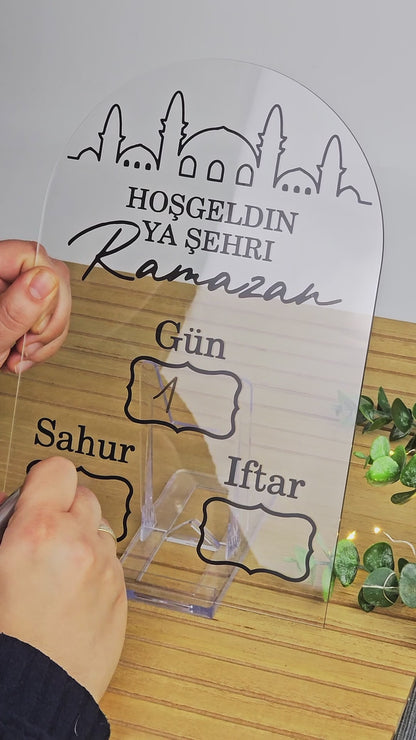 HOŞGELDIN
YA ŞEHRI
Ramazan
Gün
1
Sahur
Iftar